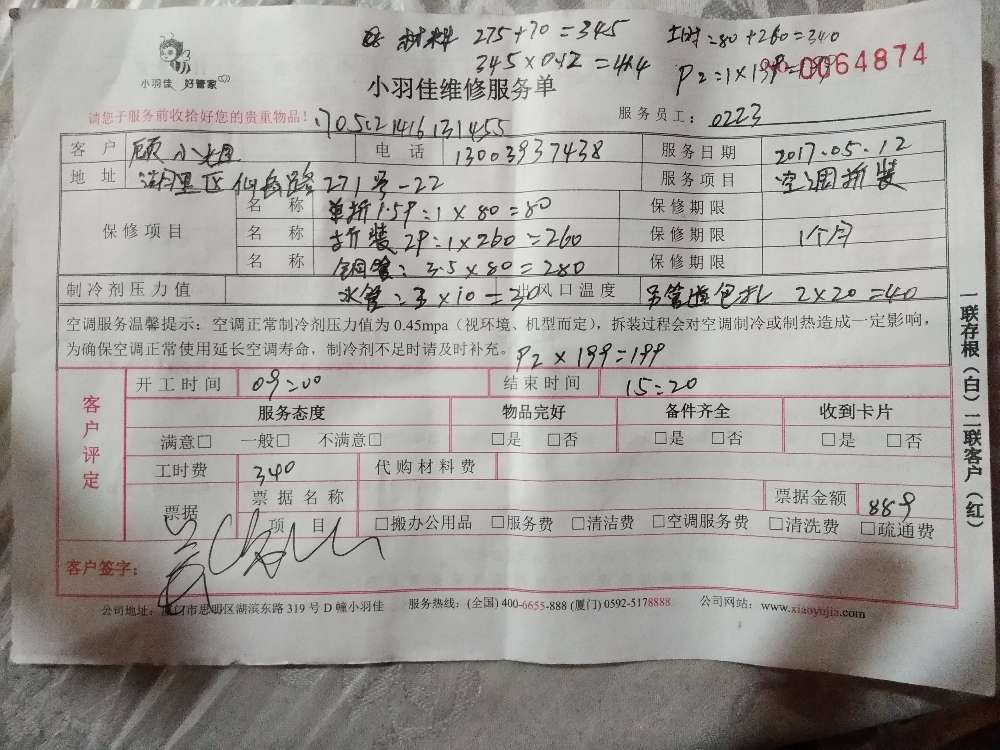 材料 275+70=345 工时:80+260=340
P2:1×199=199
小羽佳 好管家
0064874
小羽佳维修服务单
请您于服务前收拾好您的贵重物品!
服务员工: 0223
客户 顾小姐 电话 13003937438 服务日期 2017.05.12
地址 湖里区仙岳路271号-22 服务项目 空调拆装
保修项目
名称 单拆1.5P:1×80=80 保修期限
名称 拆装2P:1×260=260 保修期限 1个月
名称 铜管:3.5×80=280 保修期限
制冷剂压力值 水管:3×10=30 出风口温度 吊管道包扎 2×20=40
空调服务温馨提示:空调正常制冷剂压力值为 0.45mpa(视环境、机型而定),拆装过程会对空调制冷或制热造成一定影响,
为确保空调正常使用延长空调寿命,制冷剂不足时请及时补充。 P2×199=199
客户评定
开工时间 09:00 结束时间 15:20
服务态度 物品完好 备件齐全 收到卡片
满意□ 一般□ 不满意□ □是 □否 □是 □否 □是 □否
工时费 340 代购材料费
票据 票据名称 票据金额 889
项目 □搬办公用品 □服务费 □清洁费 □空调服务费 □清洗费 □疏通费
客户签字:
公司地址:厦门市思明区湖滨东路 319 号 D 幢小羽佳 服务热线:(全国) 400-6655-888 (厦门) 0592-5178888 公司网站:www.xiaoyujia.com
一联存根(白)二联客户(红)